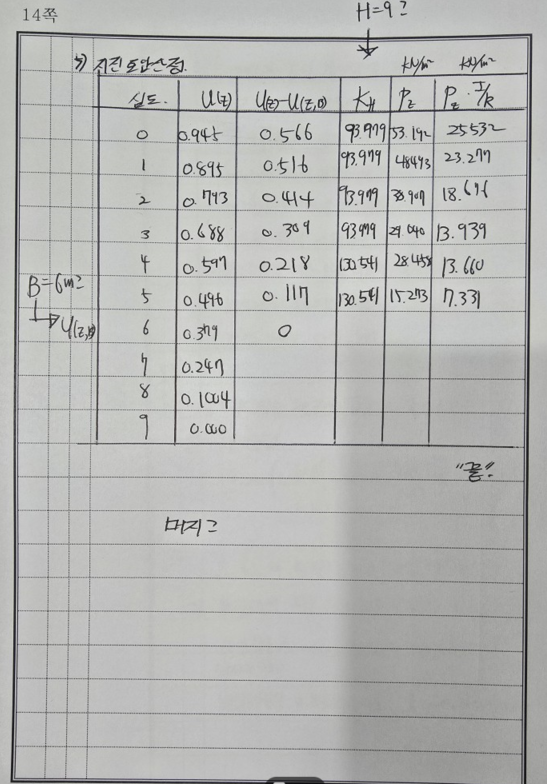 14쪽
H=9m
5) 지진토압산정.
kN/m² kN/m²
심도. U(z) U(z)-U(z,B) KH Pz Pz·I/R
0 0.945 0.566 93.979 53.192 25.532
1 0.895 0.516 93.979 48.493 23.277
2 0.793 0.414 93.979 38.907 18.676
3 0.688 0.309 93.979 29.040 13.939
4 0.597 0.218 130.541 28.458 13.660
5 0.496 0.117 130.541 15.273 7.331
B=6m
U(z,B)
6 0.379 0
7 0.247
8 0.1004
9 0.000
"끝".